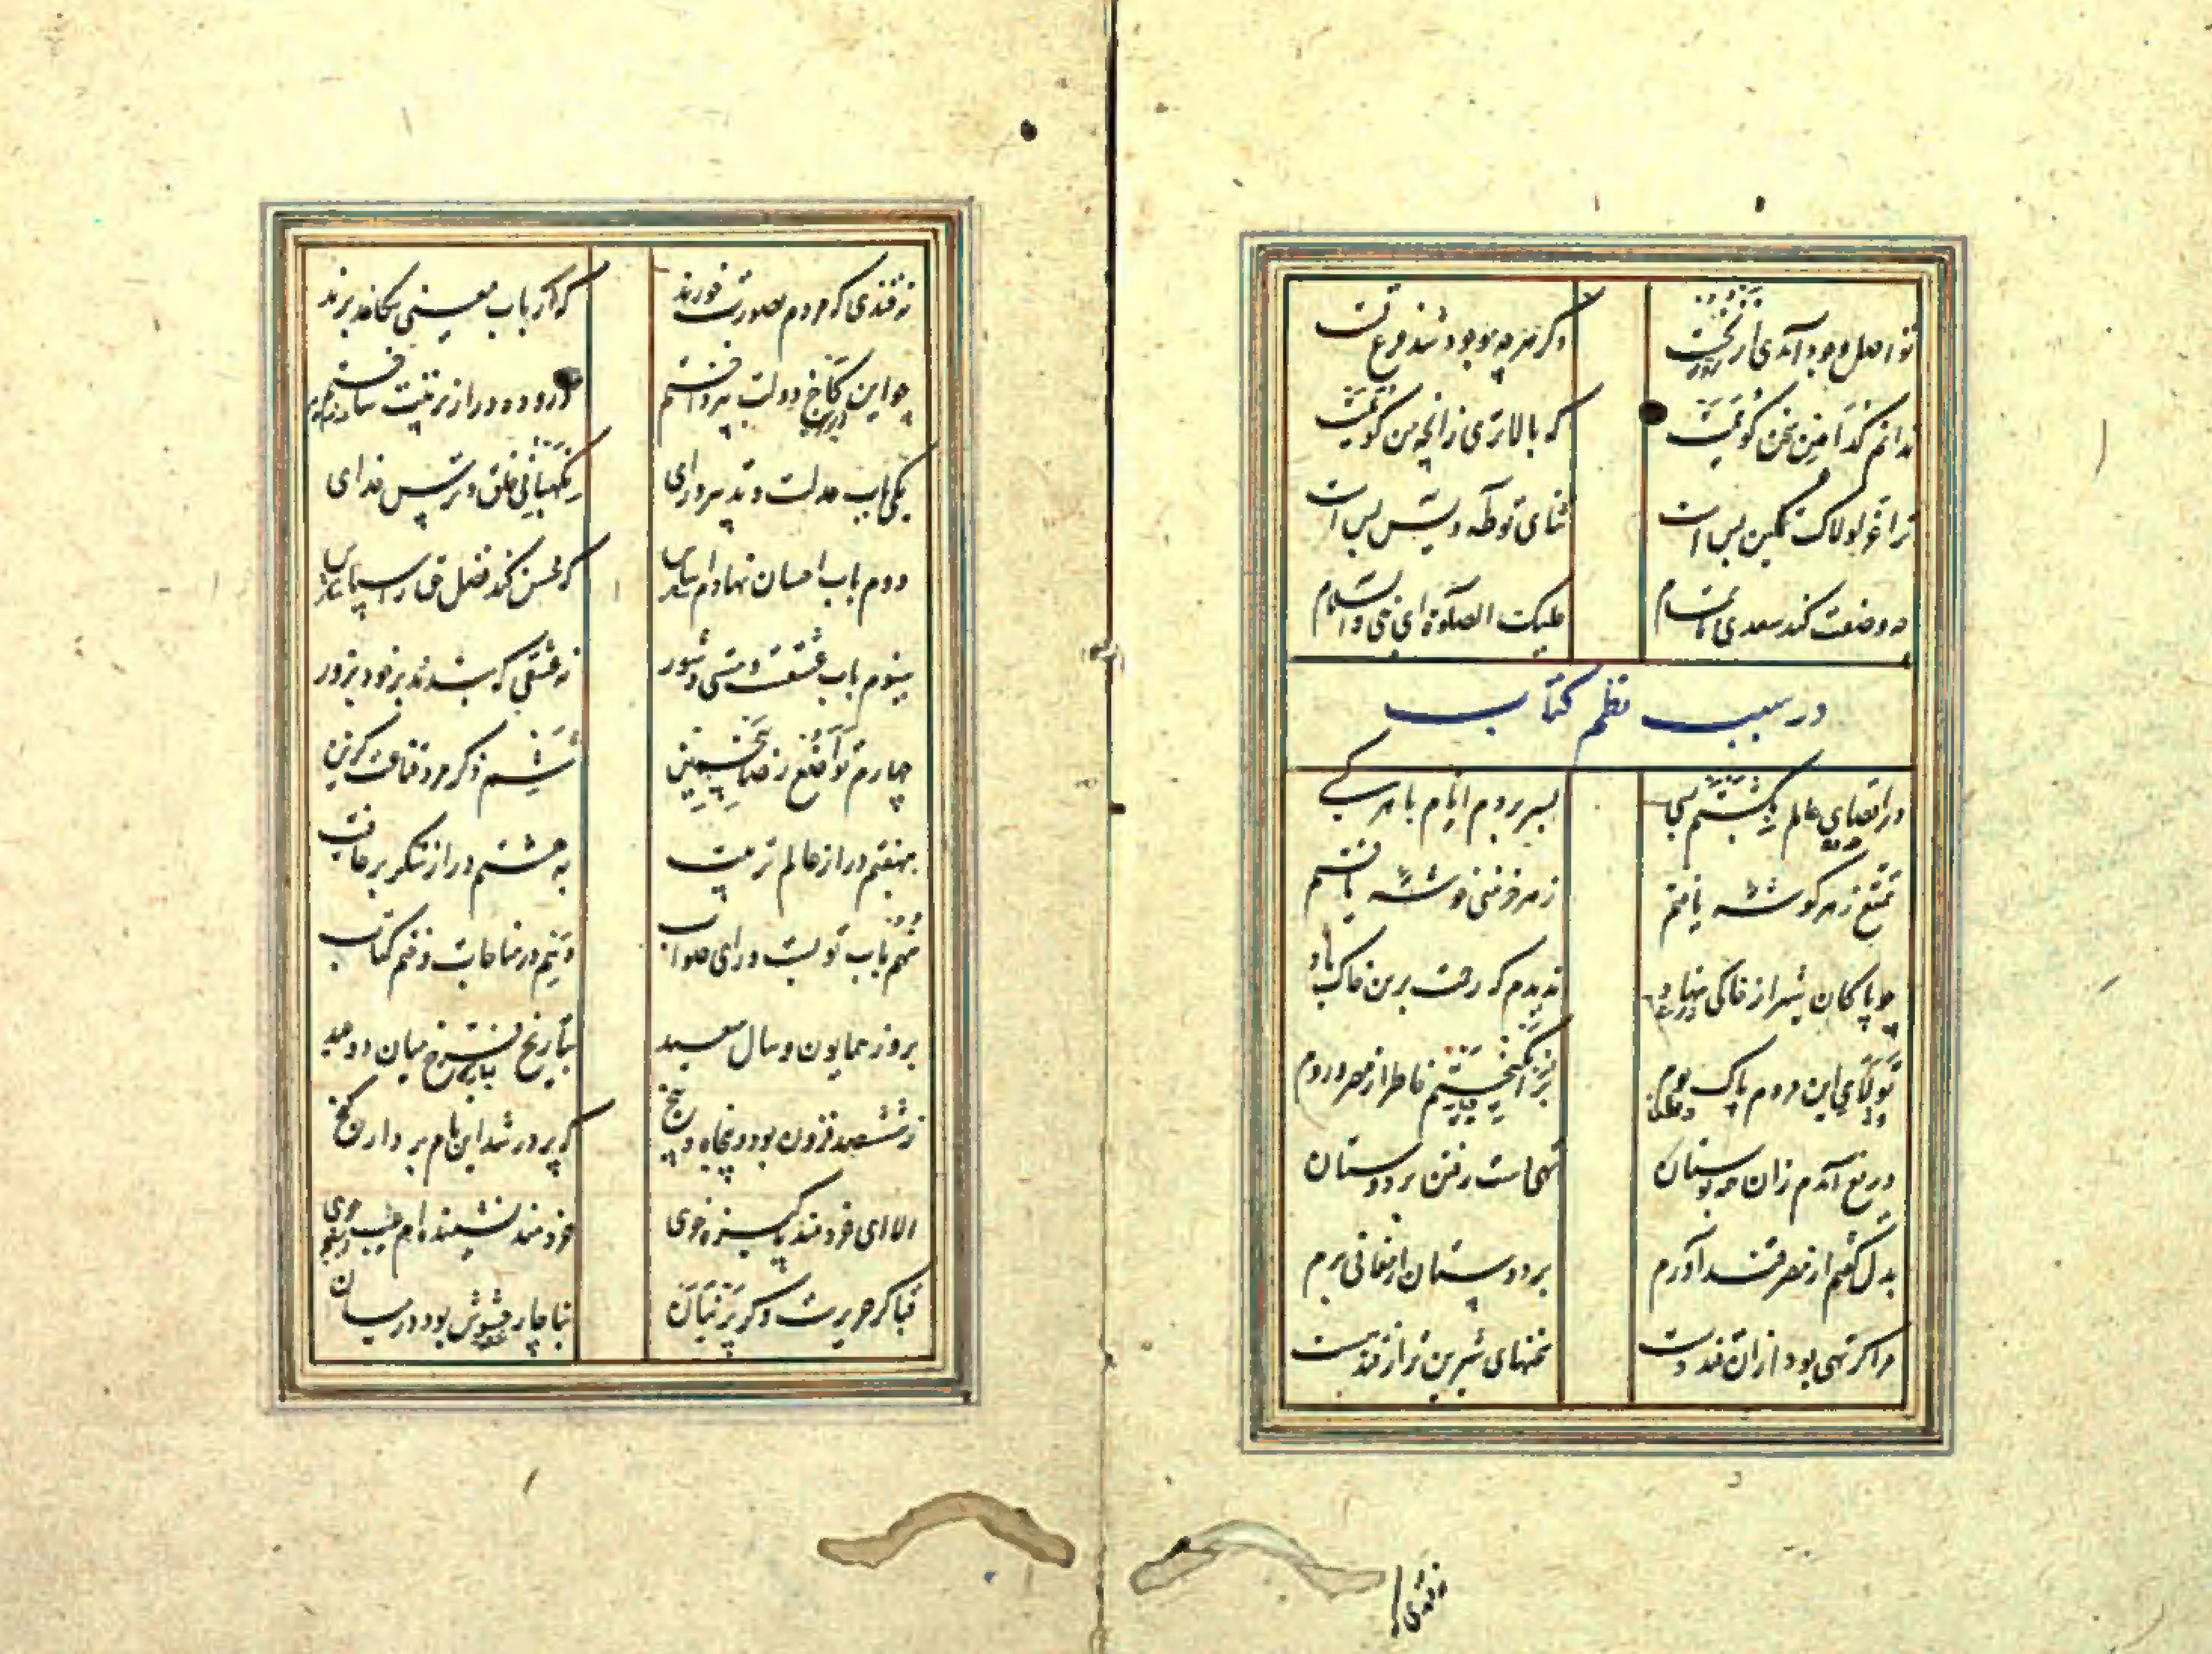 تو اصل وجود آمدی از نخست
دگر هر چه موجود شد فرع تست
ندانم کدامین سخن گویمت
که بالاتری زانچه من گویمت
ترا عز لولاک تمکین بس است
ثنای تو طه و یس بس است
چه وصفت کند سعدی ناتمام
علیک الصلوة ای نبی والسلام
در سبب نظم کتاب
در اقصای عالم بگشتم بسی
بسر بردم ایام با هر کسی
تمتع ز هر گوشه یافتم
ز هر خرمنی خوشه یافتم
چو پاکان شیراز خاکی نهاد
ندیدم که رحمت برین خاک باد
تولای این مردم پاک بوم
برانگیختم خاطر از مصر و روم
دریغ آمدم زان همه بوستان
تهی دست رفتن بر دوستان
بدل گفتم از مصر قند آورم
بر دوستان ارمغانی برم
مرا گر تهی بود ازان قند دست
سخنهای شیرین تر از قند هست
نه قندی
نه قندی که مردم بصورت خورند
که ارباب معنی بکاغد برند
چو این کاخ دولت بپرداختم
درو ده در از تربیت ساختم
یکی باب عدلست و تدبیر و رای
نگهبانی خلق و ترس خدای
دوم باب احسان نهادم اساس
که محسن کند فضل حق را سپاس
سیوم باب عشقست و مستی و شور
نه عشقی که بندند بر خود بزور
چهارم تواضع رضا پنجمین
ششم ذکر مرد قناعت گزین
بهفتم در از عالم تربیت
به هشتم در از شکر بر عافیت
نهم باب توبست و رای صواب
دهم در مناجات و ختم کتاب
بروز همایون و سال سعید
بتاریخ فرخ میان دو عید
ز ششصد فزون بود و پنجاه و پنج
که پر در شد این نام بردار گنج
الا ای خردمند پاکیزه خوی
خردمند نشنیده ام عیب جوی
قبا گر حریرست و گر پرنیان
بناچار حشوش بود در میان